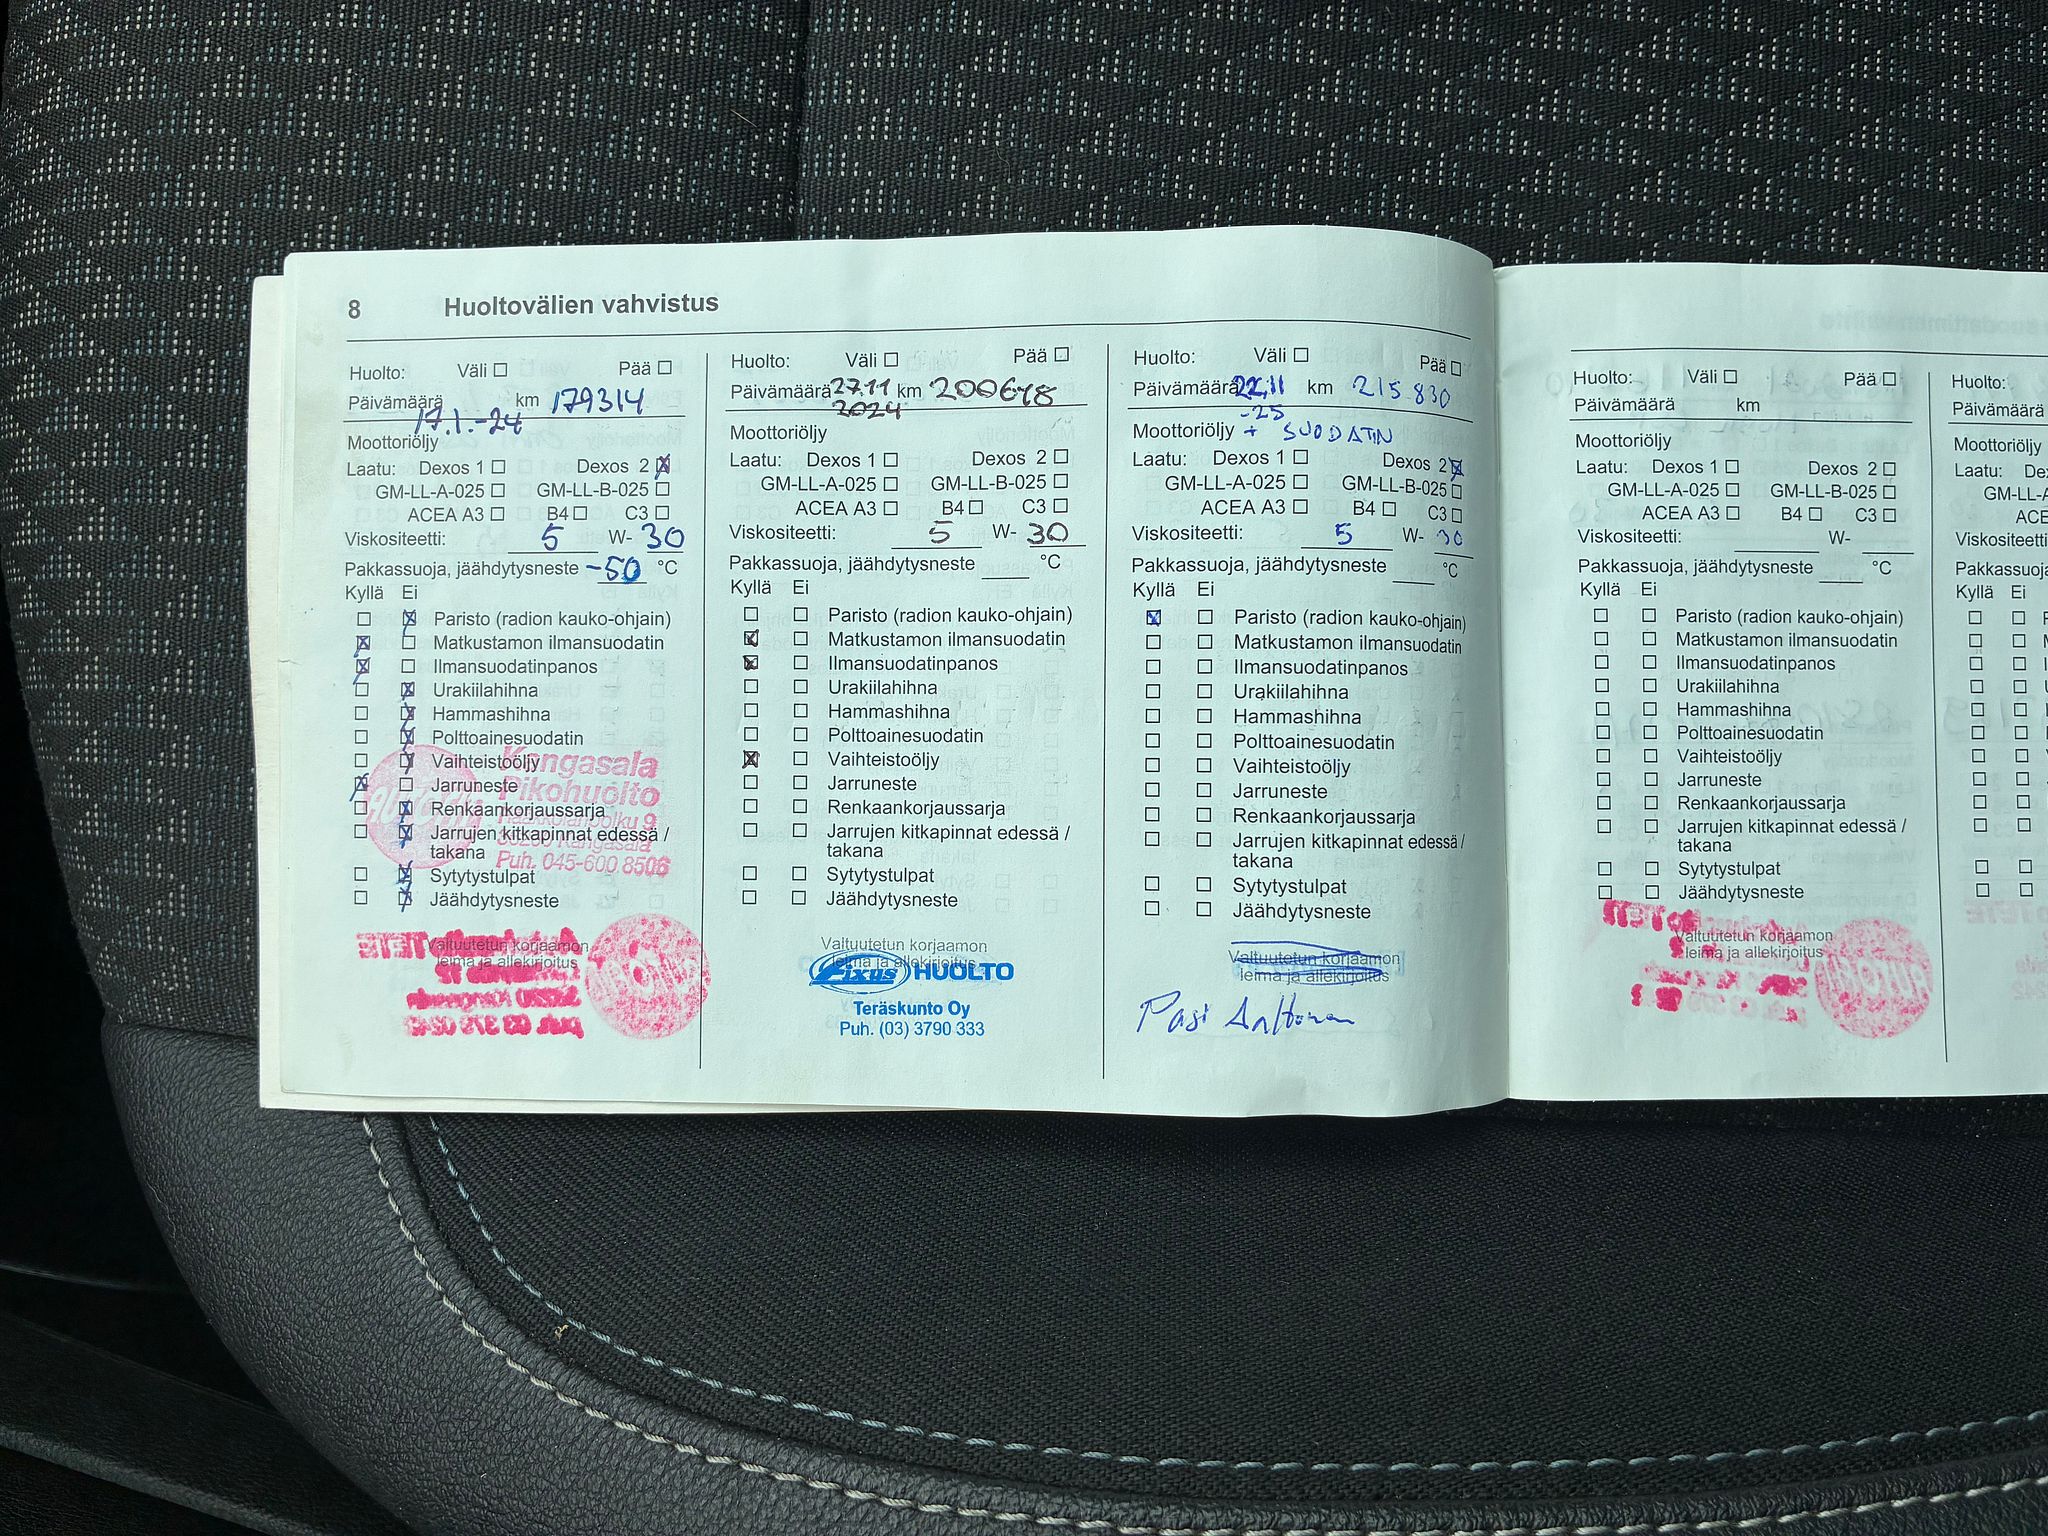 8 Huoltovälien vahvistus
Huolto: Väli Pää
Päivämäärä 17.1.-24 km 179314
Moottoriöljy
Laatu: Dexos 1 Dexos 2
GM-LL-A-025 GM-LL-B-025
ACEA A3 B4 C3
Viskositeetti: 5 W- 30
Pakkassuoja, jäähdytysneste -50 °C
Kyllä Ei
Paristo (radion kauko-ohjain)
Matkustamon ilmansuodatin
Ilmansuodatinpanos
Urakiilahihna
Hammashihna
Polttoainesuodatin
Vaihteistoöljy
Jarruneste
Renkaankorjaussarja
Jarrujen kitkapinnat edessä /
takana
Sytytystulpat
Jäähdytysneste
Kangasala
Pikohuolto
36200 Kangasala
Puh. 045-600 8506
Valtuutetun korjaamon
leima ja allekirjoitus
Huolto: Väli Pää
Päivämäärä 27.11 km 200678
2024
Moottoriöljy
Laatu: Dexos 1 Dexos 2
GM-LL-A-025 GM-LL-B-025
ACEA A3 B4 C3
Viskositeetti: 5 W- 30
Pakkassuoja, jäähdytysneste °C
Kyllä Ei
Paristo (radion kauko-ohjain)
Matkustamon ilmansuodatin
Ilmansuodatinpanos
Urakiilahihna
Hammashihna
Polttoainesuodatin
Vaihteistoöljy
Jarruneste
Renkaankorjaussarja
Jarrujen kitkapinnat edessä /
takana
Sytytystulpat
Jäähdytysneste
Valtuutetun korjaamon
leima ja allekirjoitus
Fixus HUOLTO
Teräskunto Oy
Puh. (03) 3790 333
Huolto: Väli Pää
Päivämäärä 22.11 km 215.830
-25
Moottoriöljy + SUODATIN
Laatu: Dexos 1 Dexos 2
GM-LL-A-025 GM-LL-B-025
ACEA A3 B4 C3
Viskositeetti: 5 W- 30
Pakkassuoja, jäähdytysneste °C
Kyllä Ei
Paristo (radion kauko-ohjain)
Matkustamon ilmansuodatin
Ilmansuodatinpanos
Urakiilahihna
Hammashihna
Polttoainesuodatin
Vaihteistoöljy
Jarruneste
Renkaankorjaussarja
Jarrujen kitkapinnat edessä /
takana
Sytytystulpat
Jäähdytysneste
Valtuutetun korjaamon
leima ja allekirjoitus
Pasi Anttonen
Huolto: Väli Pää
Päivämäärä km
Moottoriöljy
Laatu: Dexos 1 Dexos 2
GM-LL-A-025 GM-LL-B-025
ACEA A3 B4 C3
Viskositeetti: W-
Pakkassuoja, jäähdytysneste °C
Kyllä Ei
Paristo (radion kauko-ohjain)
Matkustamon ilmansuodatin
Ilmansuodatinpanos
Urakiilahihna
Hammashihna
Polttoainesuodatin
Vaihteistoöljy
Jarruneste
Renkaankorjaussarja
Jarrujen kitkapinnat edessä /
takana
Sytytystulpat
Jäähdytysneste
Valtuutetun korjaamon
leima ja allekirjoitus
Huolto:
Päivämäärä
Laatu:
GM-LL-A
Kyllä Ei